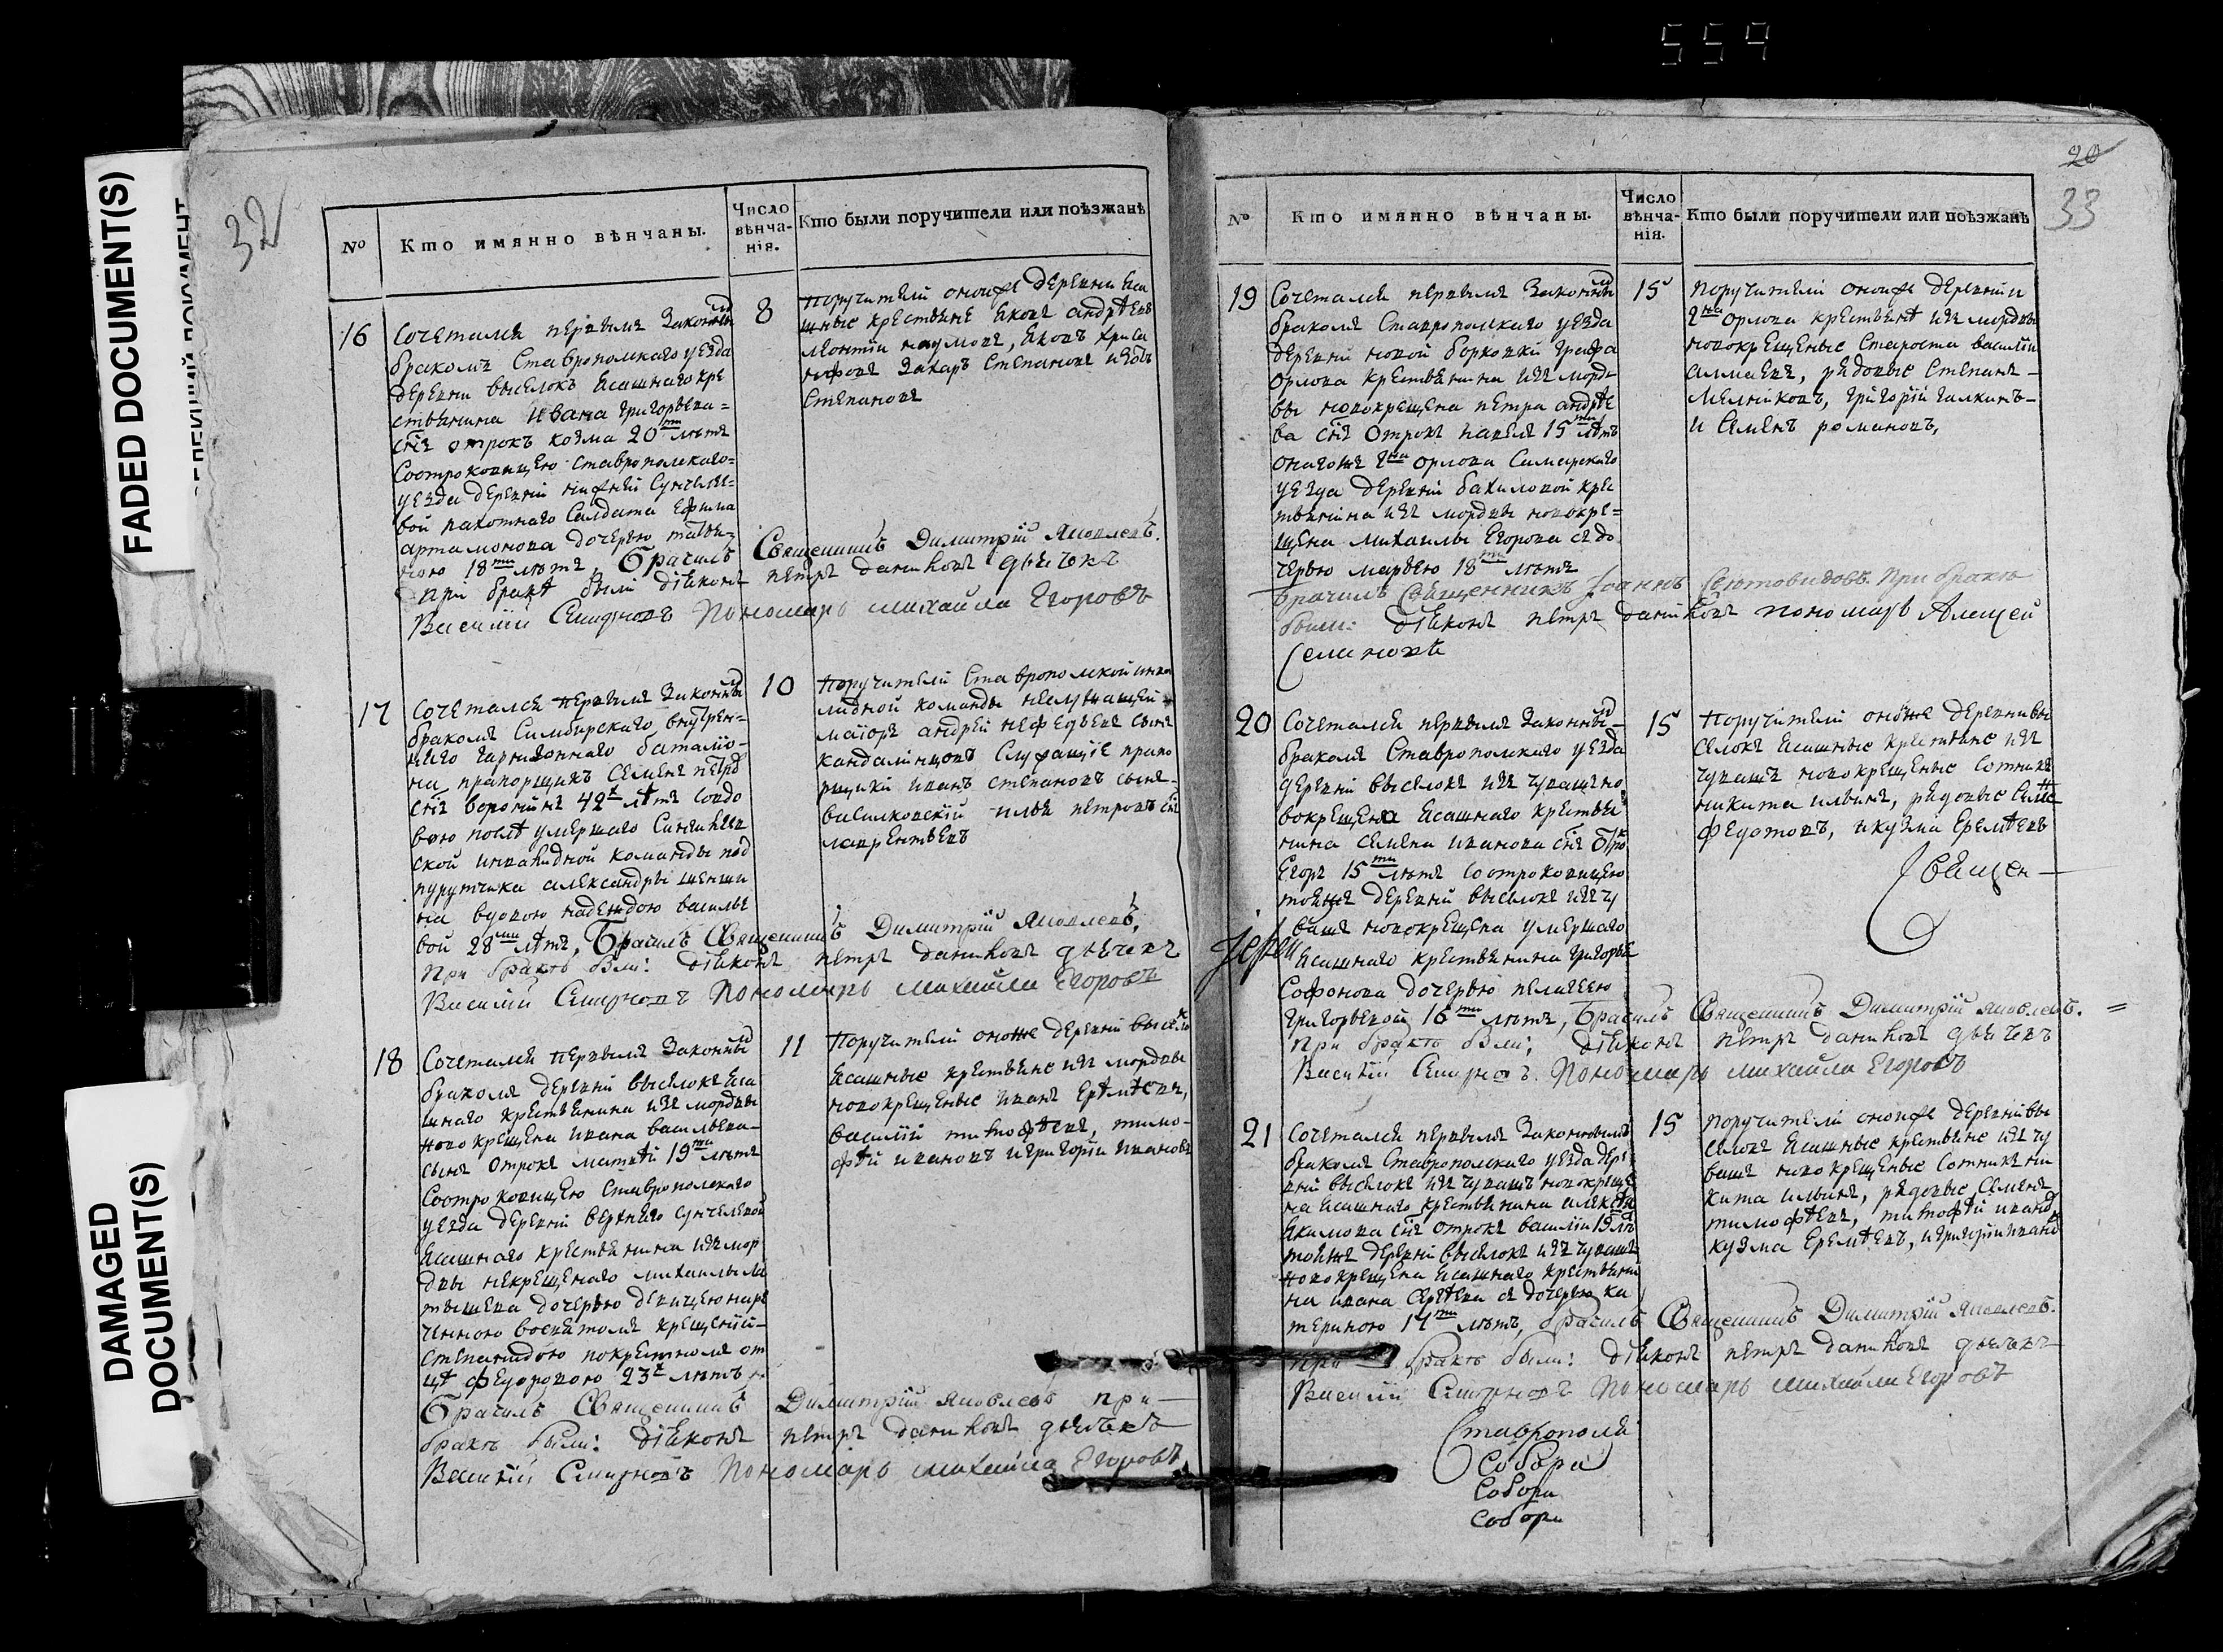 559
FADED DOCUMENT(S)
DAMAGED
DOCUMENT(S)
32
№
Кто имянно вѣнчаны.
Число
вѣнча-
нія.
Кто были поручители или поѣзжанѣ
16
Сочетался первымъ законным
бракомъ Ставропольскаго уезда
деревни выселокъ ясашнаго кре
стьянина Ивана Григорьева=
снъ отрокъ козма 20ти лѣтъ
Соотроковицею Ставропольскаго=
уезда деревни нижней Сунчелее=
вой пахотнаго Салдата Ефима
артамонова дочерью
18ти лѣтъ, Брачилъ Священникъ Димитрій Яковлевъ.
при бракѣ были дїяконъ петръ даниловъ дьячекъ
Василий Смирновъ Пономарь михайла Егоровъ
8
поручители оноиже деревни яса
шные крестьяне яковъ андрѣевъ
леонтїи наумовъ, яковъ
захаръ Степановъ
Степановъ
17
Сочетался первымъ законным
бракомъ Симбирскаго внутрен=
няго гарнизоннаго баталїо-
на прапорщикъ Семенъ петро
снъ воронинъ 42х лѣтъ совдо
вою послѣ умершаго
ской инвалидной команды под
порутчика александры
вдовою надеждою василье
вой 28ми лѣтъ, Брачилъ Священникъ Димитрій Яковлевъ,
При бракѣ были: дїяконъ петръ даниловъ дьячекъ
Василий Смирновъ Пономарь михайла Егоровъ
10
поручители Ставропольской инва
лидной команды неслужащей
маїоръ андрей нефедьевъ сынъ
Служащїе прапо
рщики иванъ степановъ сынъ-
василковскїй илья петровъ снъ
лаврентьевъ
18
Сочетался первымъ законным
бракомъ деревни выселокъ яса
шнаго крестьянина изъ мордвы
новокрещена ивана васильева-
сынъ отрокъ матвѣй 19ти лѣтъ
Соотроковицею Ставропольскаго
уезда деревни верхняго сунчелеевой
ясашнаго крестьянина изъ мор
двы некрещенаго
дочерью девицею наре
ченною восвятомъ крещенїи-
степанидою покрестномъ от
цѣ федоровою 23х лѣтъ
Брачилъ Священникъ Димитрій Яковлевъ при-
бракѣ были: дїяконъ петръ даниловъ дьячекъ
Василий Смирновъ Пономарь михайла Егоровъ
11
поручители оноже деревни выселк
ясашные крестьяне изъ мордвы
новокрещеные иванъ ерѣмѣевъ,
василїй тимофѣевъ, тимо-
фѣй ивановъ игригорїи ивановъ
20
33
№
Кто имянно вѣнчаны.
Число
вѣнча-
нія.
Кто были поручители или поѣзжанѣ
19
Сочетался первымъ законным
бракомъ Ставропольскаго уезда
деревни новой борковки графа
орлова крестьянина изъ морд=
вы новокрещена петра андрѣе
ва снъ отрокъ павелъ 15ти лѣтъ
онагоже гна орлова Самарскаго
уезда деревни бахиловой крес
тьянина изъ мордвы новокре=
щена михаилы Егорова съ до
черью марьею 18ти лѣтъ
Брачилъ Священникъ Іоаннъ Свѣтовидовъ. При бракѣ
были: дїяконъ петръ даниловъ пономарь Алексей
Семеновъ
15
поручители оноиже деревни
гна орлова крестьянѣ изъ мордвы
новокрещеные Староста василїи
рядовые Степанъ-
Мелниковъ, григорїй галкинъ-
и Семенъ романовъ,
20
Сочетался первымъ законным-
бракомъ Ставропольскаго уезда
деревни выселокъ изъ чувашъ но
вокрещена ясашнаго крестья
нина семена иванова снъ Отрок
Егоръ 15ти лѣтъ соотроковицею
тояже деревни выселокъ изъ чу
вашъ новокрещена умершаго
ясашнаго крестьянина григорья
Софонова дочерью пелагеею
григорьевой 16ти лѣтъ, Брачилъ Священникъ Димитрій Яковлевъ. =
При бракѣ были: дїяконъ петръ даниловъ дьячекъ
Василий Смирновъ. Пономарь михайла Егоровъ
15
поручители оноже деревни вы
селокъ ясашные крестьяне изъ
чувашъ новокрещеные Сотникъ
никита ильинъ, рядовые
федотовъ, икузма еремѣевъ
Священ-
Іерей
21
Сочетался первымъ законновымъ
бракомъ Ставропольскаго уезда дер
вни выселокъ изъ чувашъ новокреще
на ясашнаго крестьянина алексѣя
якимова снъ отрокъ василїи 19 лѣ
тояже деревни выселокъ изъ чувашъ
новокрещена ясашнаго крестьяни
на ивана сергѣева съ дочерью ка
териною 17ти лѣтъ, брачилъ Священникъ Димитрій Яковлевъ.
При бракѣ были: дїяконъ петръ даниловъ дьячекъ
Василий Смирновъ Пономарь михайла Егоровъ
15
поручители оноиже деревни вы
селокъ ясашные крестьяне изъ чу
вашъ новокрещеные Сотникъ ни
кита ильинъ, рядовые Семенъ
тимофѣевъ, тимофѣй иванов
кузма еремѣевъ, игригорїй иванов
Ставрополя
Собора
Собора
собора